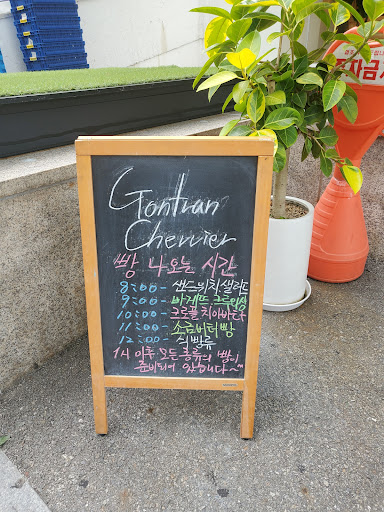 Gontran
Cherrier
빵 나오는 시간
8:00 - 샌드위치, 샐러드
9:00 - 바게뜨, 크로와상
10:00 - 크로플, 치아바타
11:00 - 소금버터빵
12:00 - 식빵류
1시 이후 모든 종류의 빵이
준비되어 있습니다~